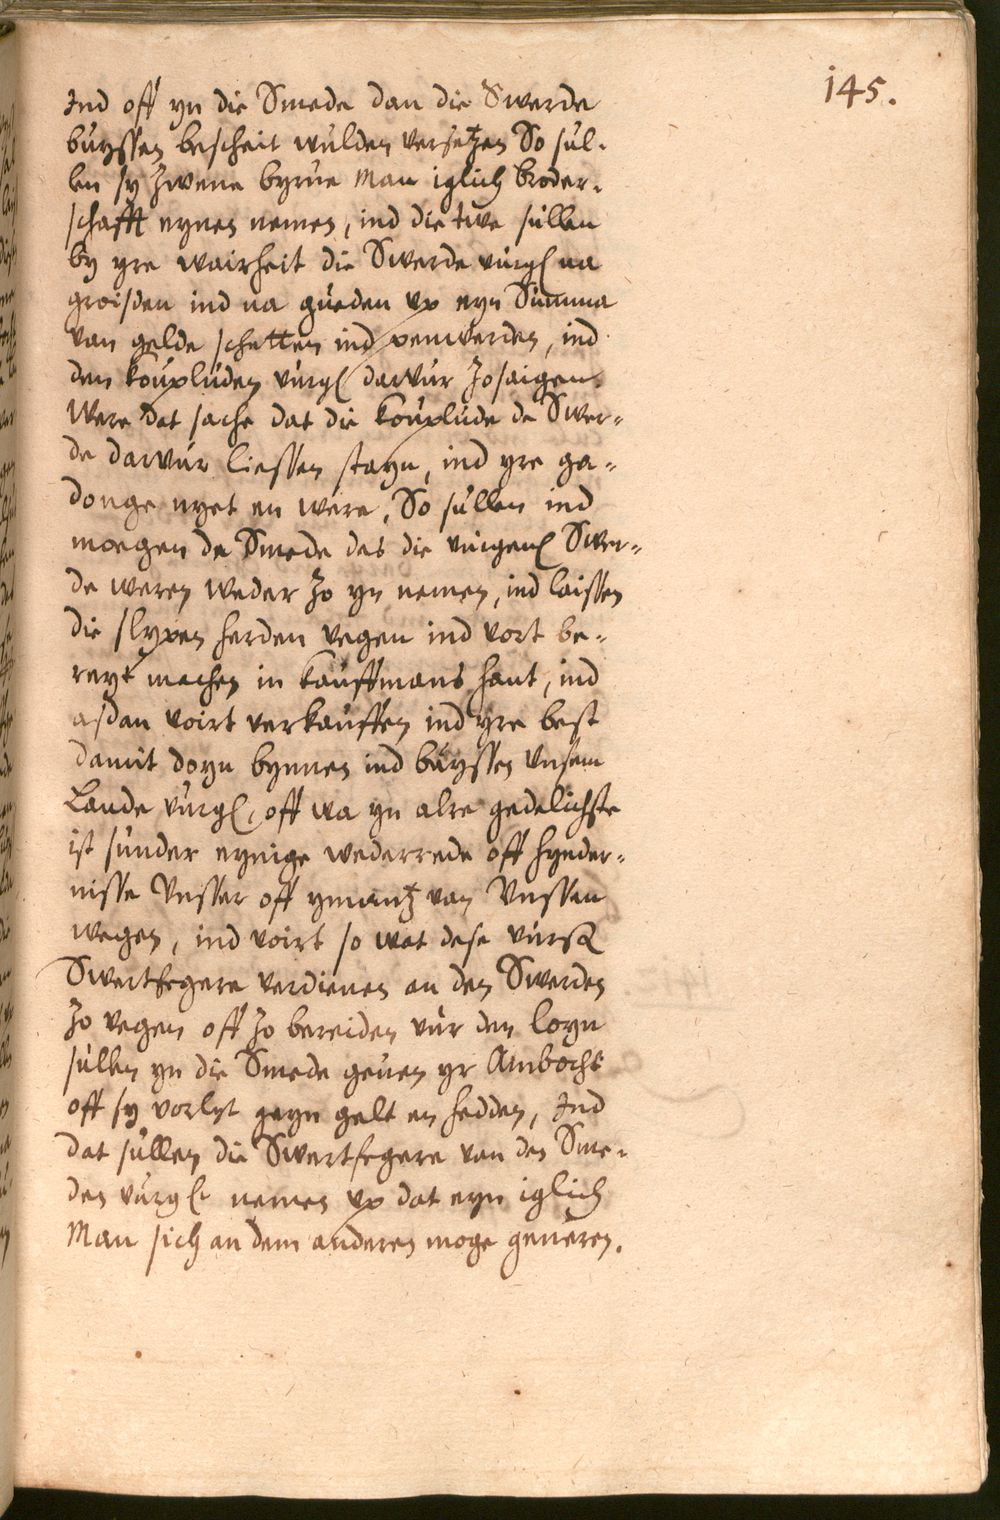 145.
Ind off yn die Smede dan die Swerde
buyssen bescheit wulden versetzen So sul-
len sy zwene byrue Man iglich broder-
schafft eynen nemen, ind die twe sullen
by yre wairheit die Swerde vurg na
groisden ind na gueden vp eyn Summa
van gelde schetten ind penwerden, ind
den kouxluden vurg darvur zosaigen.
Were dat sache dat die kouxlude de Swer=
de darvur liessen stayn, ind yre ga=
donge nyet en were, So sullen ind
moegen de Smede des die vurgen Swer=
de weren weder zo yn nemen, ind laissen
die slypen herden vegen ind vort be=
reyt machen in kauffmans hant, ind
asdan voirt verkauffen ind yre best
damit doyn bynnen ind buyssen Unsem
Lande vurg, off wa yn alre gedelichste
ist sunder eynige wederrede off hynder=
nisse Unsser off ymantz van Unssen
wegen, ind voirt so wat dese vurs
Swertfegere verdienen an den Swerden
zo vegen off zo bereiden vur den loyn
sullen yn die Smede geuen yr Ambocht
off sy vorlyt geyn gelt en hedden, Ind
dat sullen die Swertfegere van den Sme=
den vurg nemen vp dat eyn iglich
Man sich an dem anderen moge generen.